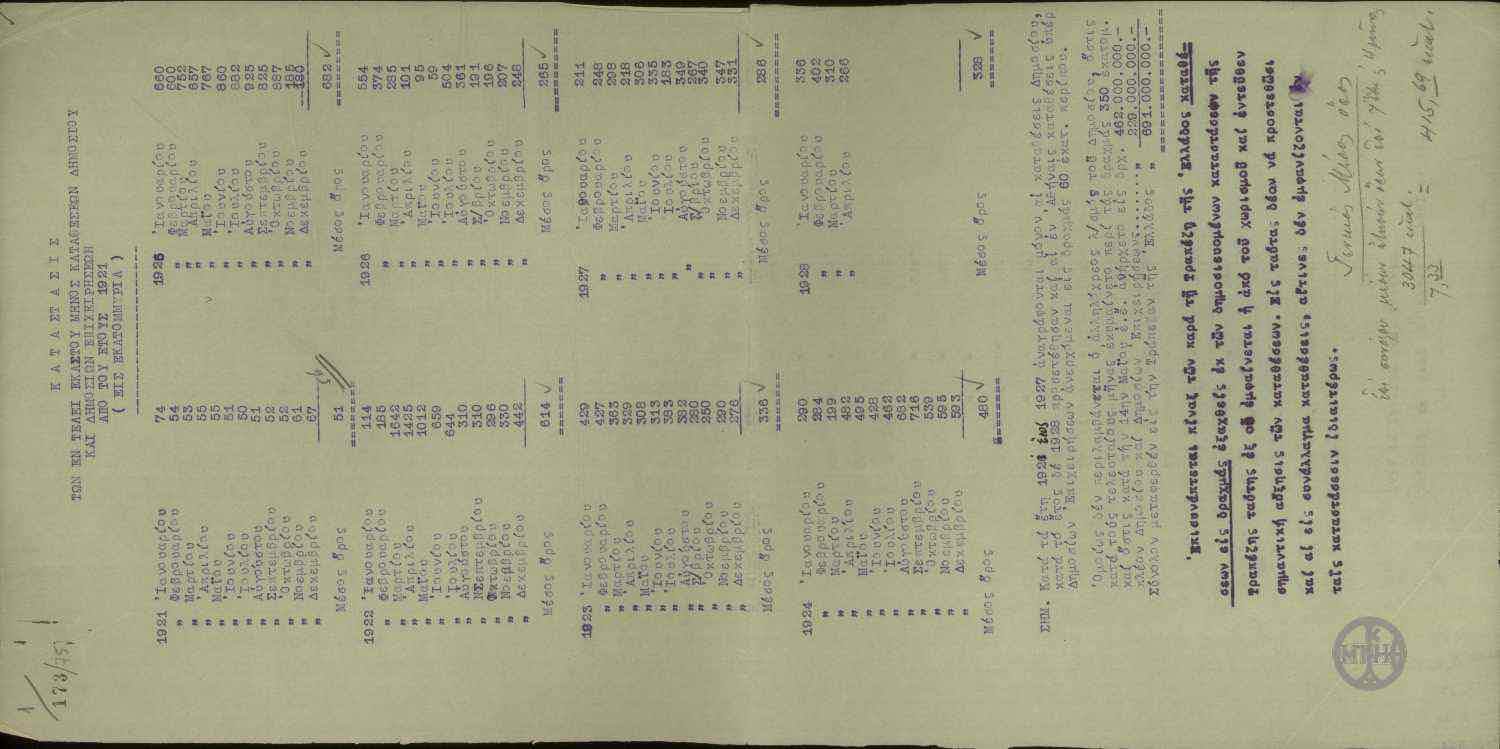 1/173/75
Κ Α Τ Α Σ Τ Α Σ Ι Σ
ΤΩΝ ΕΝ ΤΕΛΕΙ ΕΚΑΣΤΟΥ ΜΗΝΟΣ ΚΑΤΑΘΕΣΕΩΝ ΔΗΜΟΣΙΟΥ
ΚΑΙ ΔΗΜΟΣΙΩΝ ΕΠΙΧΕΙΡΗΣΕΩΝ
ΑΠΟ ΤΟΥ ΕΤΟΥΣ 1921
( ΕΙΣ ΕΚΑΤΟΜΜΥΡΙΑ )
1921 Ἰανουαρίου 74
" Φεβρουαρίου 54
" Μαρτίου 53
" Ἀπριλίου 55
" Μαΐου 55
" Ἰουνίου 51
" Ἰουλίου 50
" Αὐγούστου 51
" Σεπτεμβρίου 52
" Ὀκτωβρίου 52
" Νοεμβρίου 61
" Δεκεμβρίου 67
Μέσος ὅρος 51
1922 Ἰανουαρίου 114
" Φεβρουαρίου 185
" Μαρτίου 1642
" Ἀπριλίου 1425
" Μαΐου 1012
" Ἰουνίου 659
" Ἰουλίου 644
" Αὐγούστου 310
" Σεπτεμβρίου 310
" Ὀκτωβρίου 296
" Νοεμβρίου 330
" Δεκεμβρίου 442
Μέσος ὅρος 614
1923 Ἰανουαρίου 429
" Φεβρουαρίου 427
" Μαρτίου 363
" Ἀπριλίου 329
" Μαΐου 308
" Ἰουνίου 313
" Ἰουλίου 383
" Αὐγούστου 382
" Σ/βρίου 280
" Ὀκτωβρίου 250
" Νοεμβρίου 290
" Δεκεμβρίου 276
Μέσος ὅρος 336
1924 Ἰανουαρίου 290
" Φεβρουαρίου 284
" Μαρτίου 199
" Ἀπριλίου 482
" Μαΐου 495
" Ἰουνίου 428
" Ἰουλίου 462
" Αὐγούστου 682
" Σεπτεμβρίου 716
" Ὀκτωβρίου 539
" Νοεμβρίου 595
" Δεκεμβρίου 593
Μέσος ὅρος 480
1925 Ἰανουαρίου 660
" Φεβρουαρίου 600
" Μαρτίου 752
" Ἀπριλίου 657
" Μαΐου 767
" Ἰουνίου 860
" Ἰουλίου 882
" Αὐγούστου 925
" Σεπτεμβρίου 825
" Ὀκτωβρίου 887
" Νοεμβρίου 185
" Δεκεμβρίου 180
Μέσος ὅρος 682
1926 Ἰανουαρίου 554
" Φεβρουαρίου 374
" Μαρτίου 285
" Ἀπριλίου 101
" Μαΐου 95
" Ἰουνίου 59
" Ἰουλίου 504
" Αὐγούστου 361
" Σ/βρίου 191
" Ὀκτωβρίου 196
" Νοεμβρίου 207
" Δεκεμβρίου 248
Μέσος ὅρος 265
1927 Ἰανουαρίου 211
" Φεβρουαρίου 248
" Μαρτίου 298
" Ἀπριλίου 218
" Μαΐου 306
" Ἰουνίου 335
" Ἰουλίου 183
" Αὐγούστου 349
" Σ/βρίου 267
" Ὀκτωβρίου 340
" Νοεμβρίου 347
" Δεκεμβρίου 331
Μέσος ὅρος 286
1928 Ἰανουαρίου 336
" Φεβρουαρίου 402
" Μαρτίου 310
" Ἀπριλίου 266
Μέσος ὅρος 328
ΣΗΜ. Κατά τά ἔτη 1921 ἕως 1927 ἀναγράφονται μόνον αἱ καταθέσεις Δημοσίου,
κατά τό ἔτος δέ 1928 προσετέθησαν καί αἱ ἐν Ἀθήναις καταθέσεις ὑπέρ
Δημοσίων Ἐπιχειρήσεων ἀνερχόμεναι εἰς δραχμάς 60 ἑκατ. περίπου.
Ὁμοίως δέν περιλαμβάνεται ὁ ἀλληλόχρεος λ/σμός τοῦ Δημοσίου, ὅστις
κατά τούς τελευταίους μῆνας ἐκυμαίνετο περί τάς δραχμάς 350 ἑκατομ.
καί ὅστις κατά τήν 14ην Μαΐου ἐ.ἔ. ἀνήρχετο εἰς δρχ. 462.000.000.—
πλέον Δημοσίου καί Δημοσίων Ἐπιχειρήσεων...... " 229.000.000.—
Σύνολον μεταφερέν εἰς τήν Τράπεζαν τῆς Ἑλλάδος " 691.000.000.—
Ἐπισυνάπτεται πίναξ τῶν παρά τῇ Τραπέζῃ τῆς Ἑλλάδος καταθέ-
σεων εἰς δραχμάς ἐξαχθείς ἐκ τῶν δημοσιευομένων καταστάσεων τῆς
Τραπέζης ταύτης ἐξ οὗ ἐμφαίνεται ἡ ἀπό τοῦ χωρισμοῦ καί ἐντεῦθεν
σημαντική αὔξησις τῶν καταθέσεων. Εἰς ταύτας δέον νά προστεθῶσι
καί αἱ εἰς συνάλλαγμα καταθέσεις αἵτινες δέν ἀναλύονται ἐν
ταῖς καταστάσεσιν ἰδιαιτέρως.
Γενικός Μέσος ὅρος
3047 ἑκατ. / 7,33 = 415,69 ἑκατ.